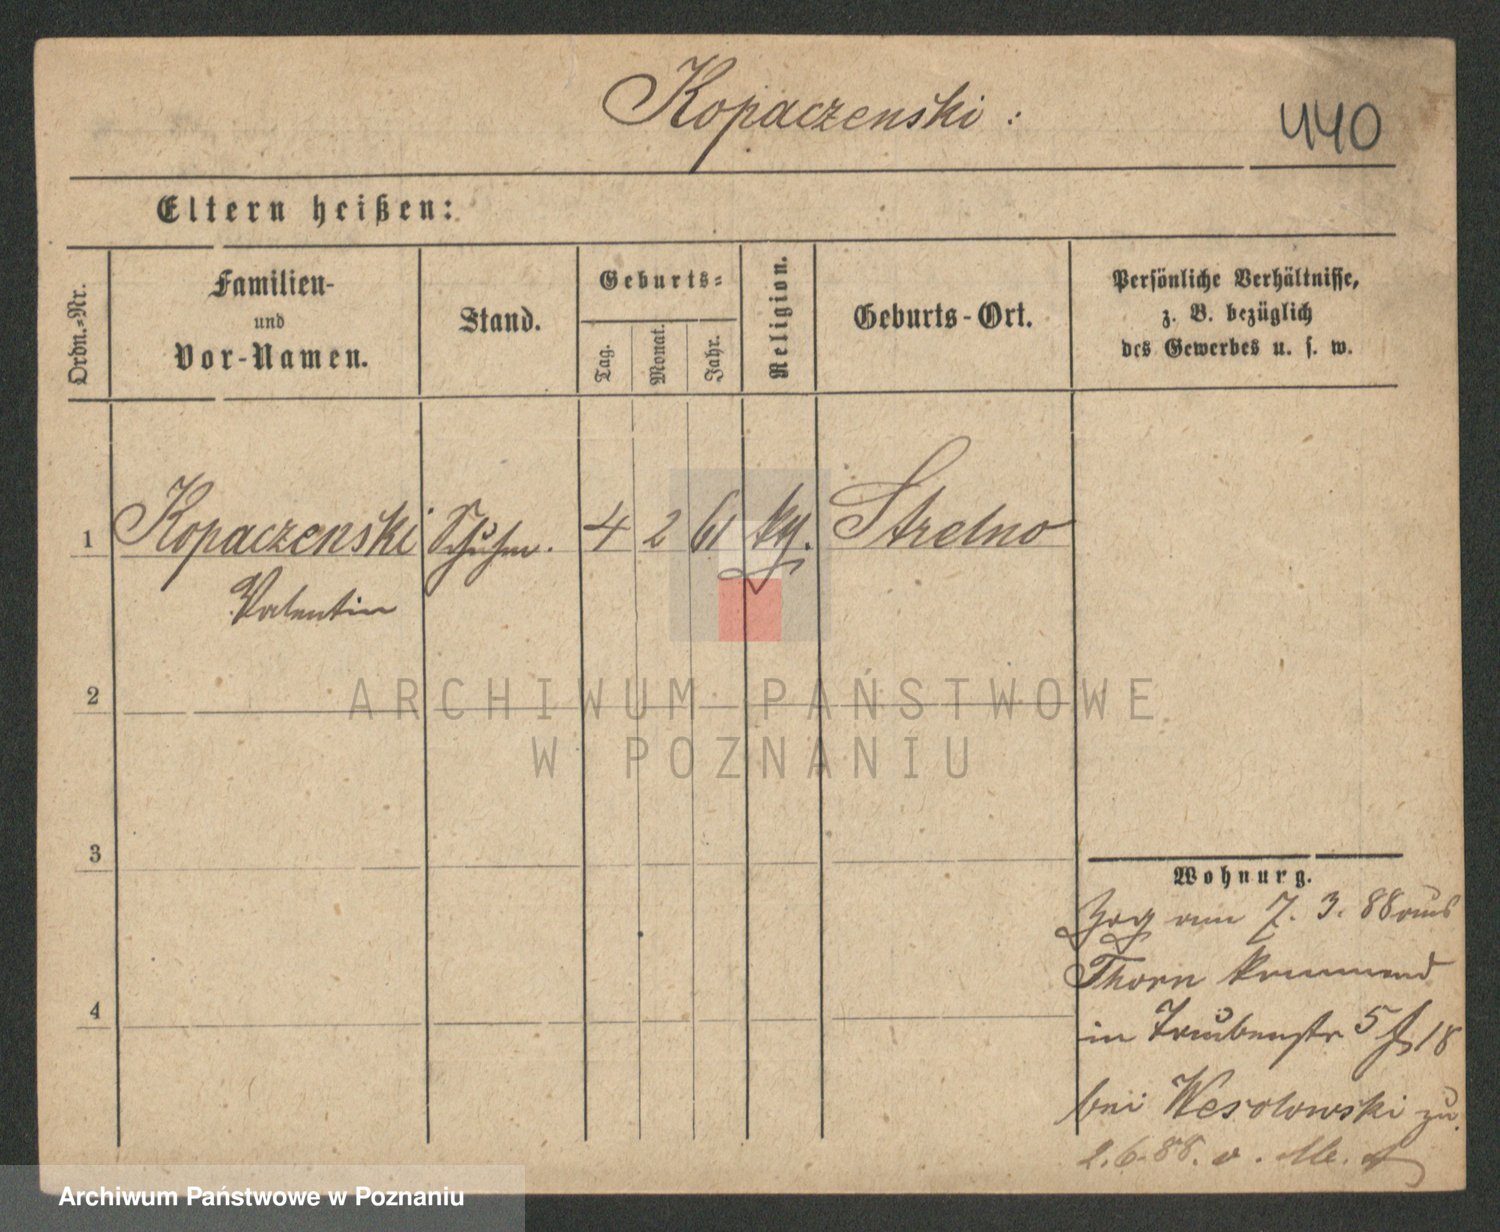 Kopaczenski :
440
Eltern heißen:
Ordn.-Nr.
Familien-
und
Vor-Namen.
Stand.
Geburts-
Tag.
Monat.
Jahr.
Religion.
Geburts-Ort.
Persönliche Verhältnisse,
z. B. bezüglich
des Gewerbes u. s. w.
1 Kopaczenski Schuhm. 4 2 61 kg. Strelno
Valentin
2
ARCHIWUM PAŃSTWOWE
W POZNANIU
3
4
Wohnung.
Zog am 7. 3. 88 aus
Thorn kommend
in Traubenstr 5 18
bei Wesolowski zu.
2.6.88. v.
Archiwum Państwowe w Poznaniu